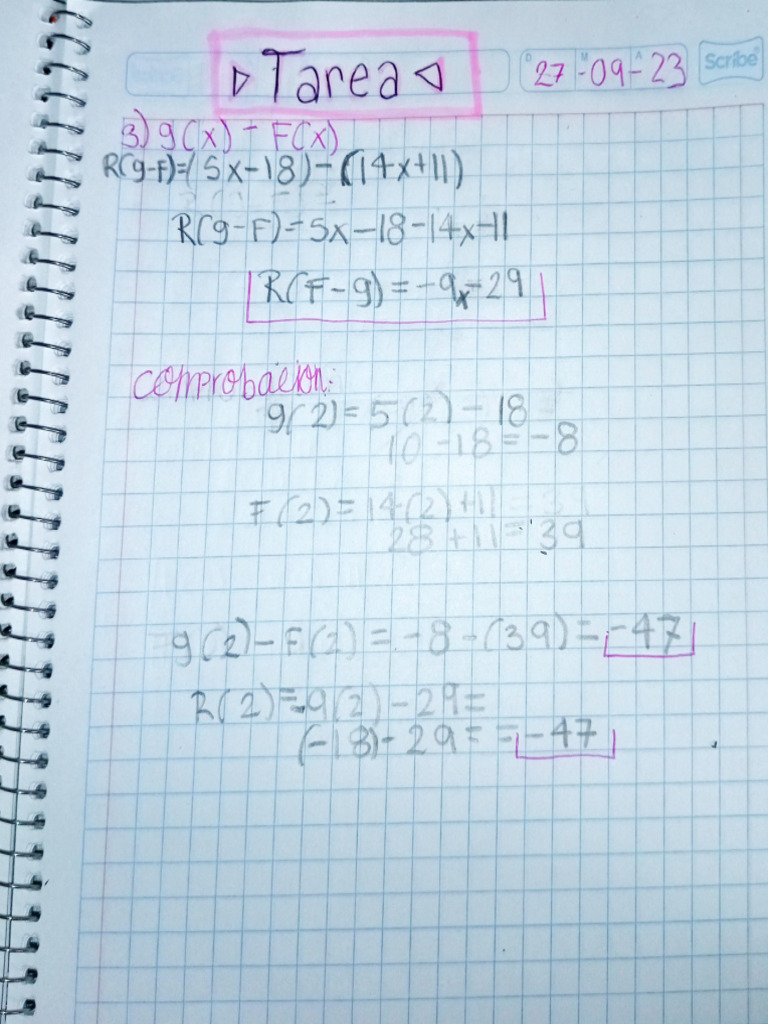 ▷ Tarea ◁
27-09-23
Scribe
3) g(x) - F(x)
R(g-F)=(5x-18)-(14x+11)
R(g-F)=5x-18-14x-11
R(F-g)=-9x-29
Comprobación:
g(2)=5(2)-18
10-18=-8
F(2)=14(2)+11
28+11=39
g(2)-F(2)=-8-(39)=-47
R(2)=-9(2)-29=
(-18)-29= =-47